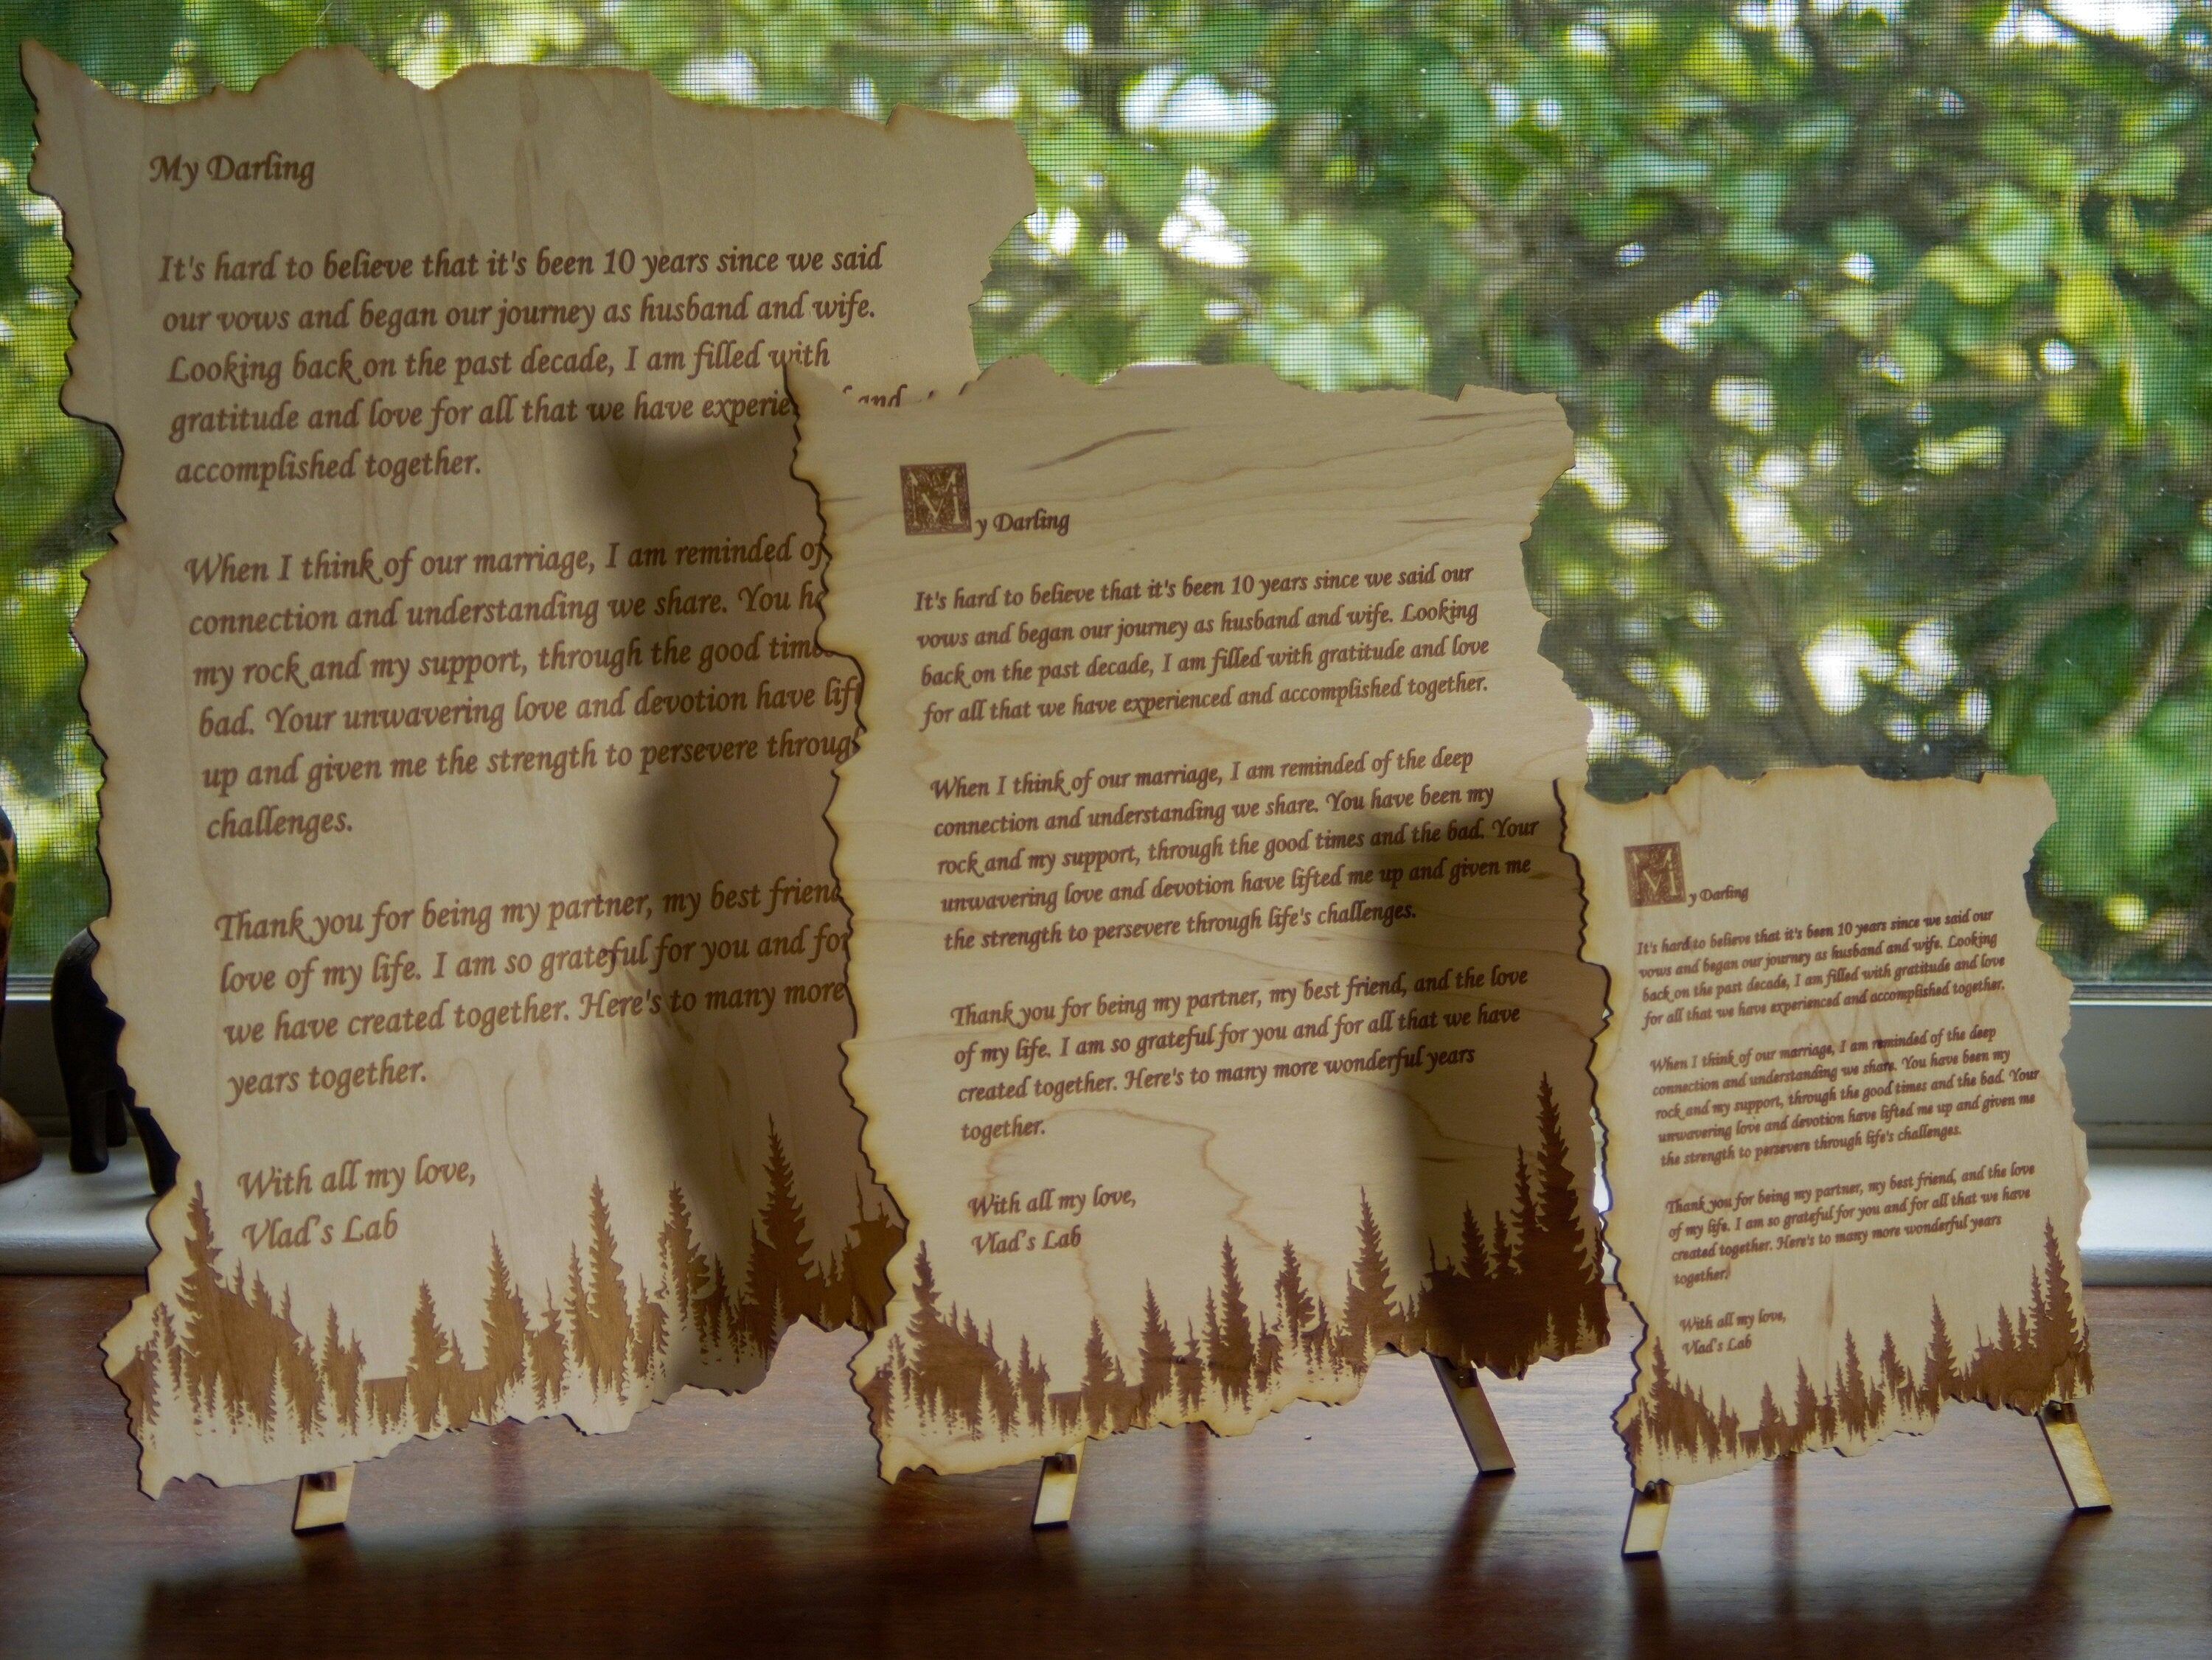 My Darling
It's hard to believe that it's been 10 years since we said
our vows and began our journey as husband and wife.
Looking back on the past decade, I am filled with
gratitude and love for all that we have and
accomplished together.
When I think of our marriage, I am reminded
connection and understanding we share. You
my rock and my support, through the good
bad. Your unwavering love and devotion have
up and given me the strength to persevere
challenges.
Thank you for being my partner, my best
love of my life. I am so grateful for you and for
we have created together. Here's to many more
years together.
With all my love,
Vlad's Lab
My Darling
It's hard to believe that it's been 10 years since we said our
vows and began our journey as husband and wife. Looking
back on the past decade, I am filled with gratitude and love
for all that we have experienced and accomplished together.
When I think of our marriage, I am reminded of the deep
connection and understanding we share. You have been my
rock and my support, through the good times and the bad. Your
unwavering love and devotion have lifted me up and given me
the strength to persevere through life's challenges.
Thank you for being my partner, my best friend, and the love
of my life. I am so grateful for you and for all that we have
created together. Here's to many more wonderful years
together.
With all my love,
Vlad's Lab
My Darling
It's hard to believe that it's been 10 years since we said our
vows and began our journey as husband and wife. Looking
back on the past decade, I am filled with gratitude and love
for all that we have experienced and accomplished together.
When I think of our marriage, I am reminded of the deep
connection and understanding we share. You have been my
rock and my support, through the good times and the bad. Your
unwavering love and devotion have lifted me up and given me
the strength to persevere through life's challenges.
Thank you for being my partner, my best friend, and the love
of my life. I am so grateful for you and for all that we have
created together. Here's to many more wonderful years
together.
With all my love,
Vlad's Lab